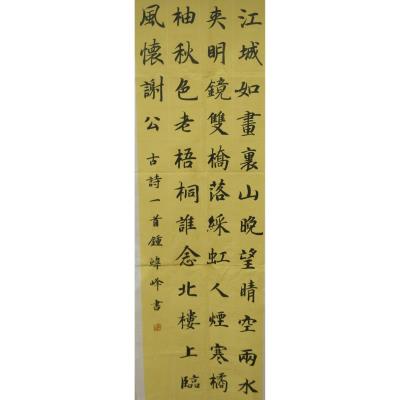 江城如畫裏山晚望晴空兩水
夾明鏡雙橋落綵虹人煙寒橘
柚秋色老梧桐誰念北樓上臨
風懷謝公
古詩一首鍾峰書